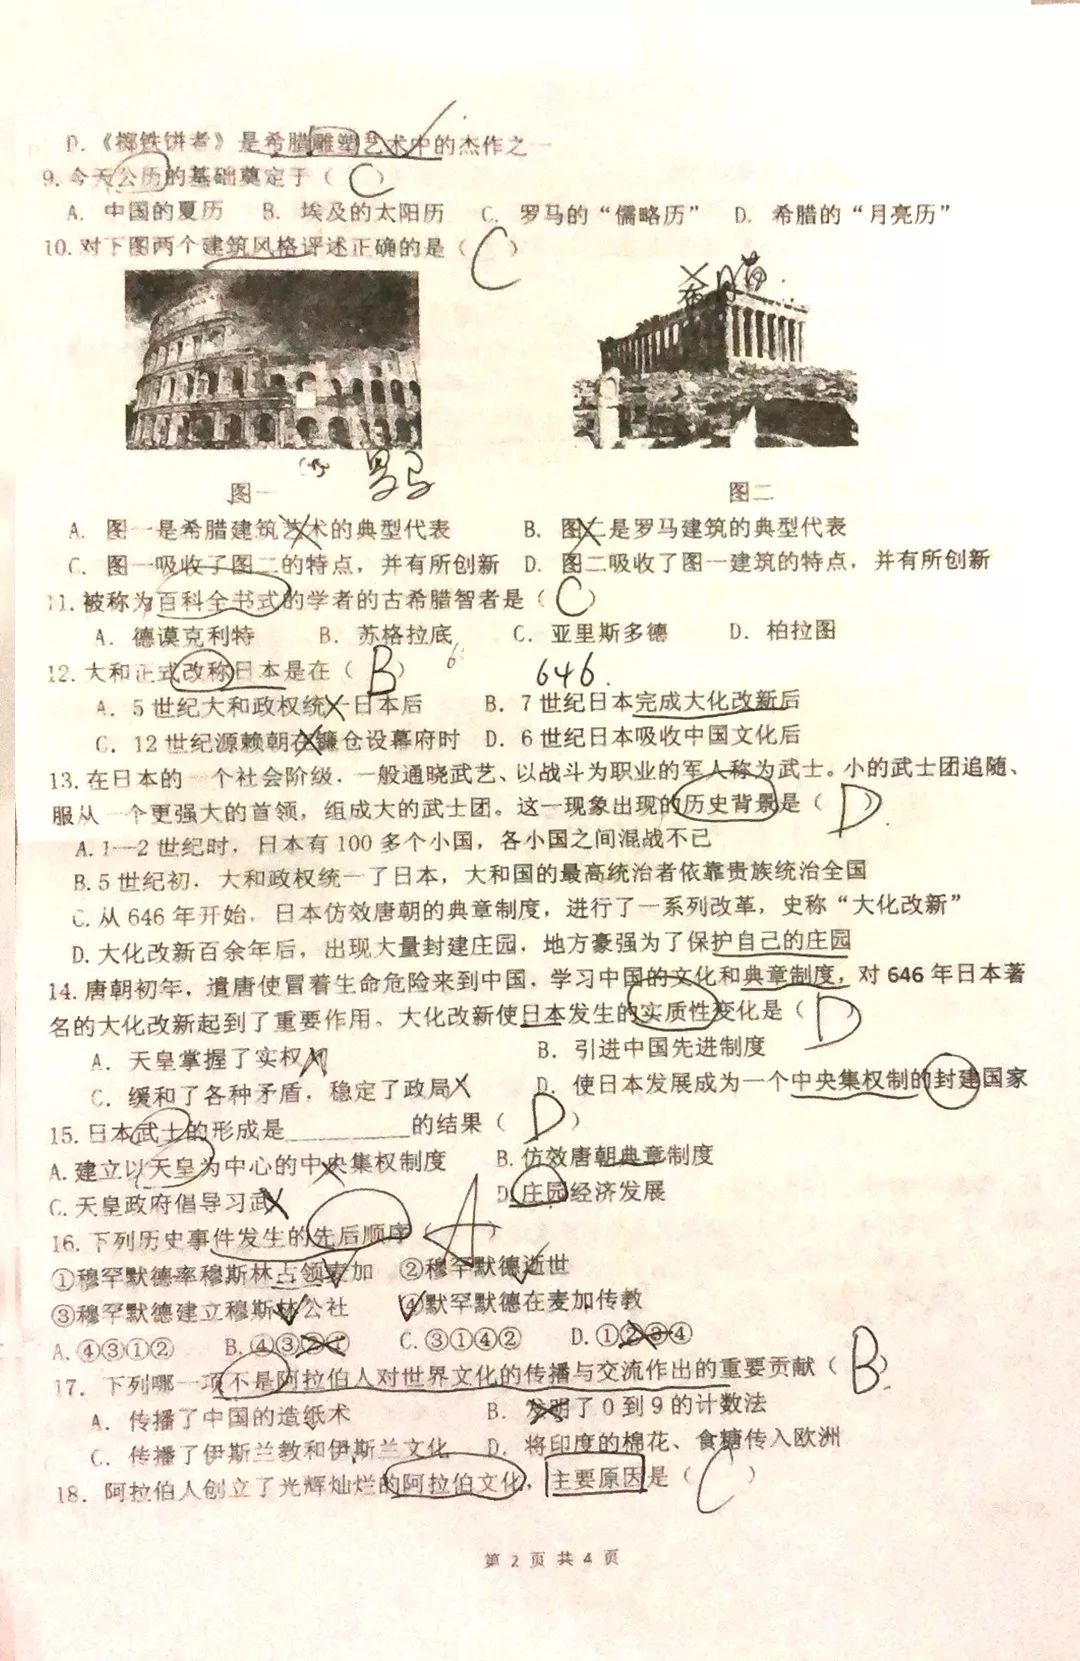 D.《掷铁饼者》是希腊雕塑艺术中的杰作之一
9.今天公历的基础奠定于（ C ）
A. 中国的夏历 B. 埃及的太阳历 C. 罗马的“儒略历” D. 希腊的“月亮历”
10.对下图两个建筑风格评述正确的是（ C ）
希腊
罗马
图一 图二
A. 图一是希腊建筑艺术的典型代表 B. 图二是罗马建筑的典型代表
C. 图一吸收了图二的特点，并有所创新 D. 图二吸收了图一建筑的特点，并有所创新
11.被称为百科全书式的学者的古希腊智者是（ C ）
A. 德谟克利特 B. 苏格拉底 C. 亚里斯多德 D. 柏拉图
12.大和正式改称日本是在（ B ） 646.
A. 5世纪大和政权统一日本后 B. 7世纪日本完成大化改新后
C. 12世纪源赖朝在镰仓设幕府时 D. 6世纪日本吸收中国文化后
13.在日本的一个社会阶级，一般通晓武艺、以战斗为职业的军人称为武士。小的武士团追随、
服从一个更强大的首领，组成大的武士团。这一现象出现的历史背景是（ D ）
A.1—2世纪时，日本有100多个小国，各小国之间混战不已
B.5世纪初，大和政权统一了日本，大和国的最高统治者依靠贵族统治全国
C.从646年开始，日本仿效唐朝的典章制度，进行了一系列改革，史称“大化改新”
D.大化改新百余年后，出现大量封建庄园，地方豪强为了保护自己的庄园
14.唐朝初年，遣唐使冒着生命危险来到中国，学习中国的文化和典章制度，对646年日本著
名的大化改新起到了重要作用。大化改新使日本发生的实质性变化是（ D ）
A. 天皇掌握了实权 B. 引进中国先进制度
C. 缓和了各种矛盾，稳定了政局 D. 使日本发展成为一个中央集权制的封建国家
15.日本武士的形成是__________的结果（ D ）
A.建立以天皇为中心的中央集权制度 B.仿效唐朝典章制度
C.天皇政府倡导习武 D.庄园经济发展
16.下列历史事件发生的先后顺序（ A ）
①穆罕默德率穆斯林占领麦加 ②穆罕默德逝世
③穆罕默德建立穆斯林公社 ④默罕默德在麦加传教
A.④③①② B.④③②① C.③①④② D.①②③④
17. 下列哪一项不是阿拉伯人对世界文化的传播与交流作出的重要贡献（ B ）
A. 传播了中国的造纸术 B. 发明了0到9的计数法
C. 传播了伊斯兰教和伊斯兰文化 D. 将印度的棉花、食糖传入欧洲
18. 阿拉伯人创立了光辉灿烂的阿拉伯文化，主要原因是（ C ）
第 2 页 共 4 页